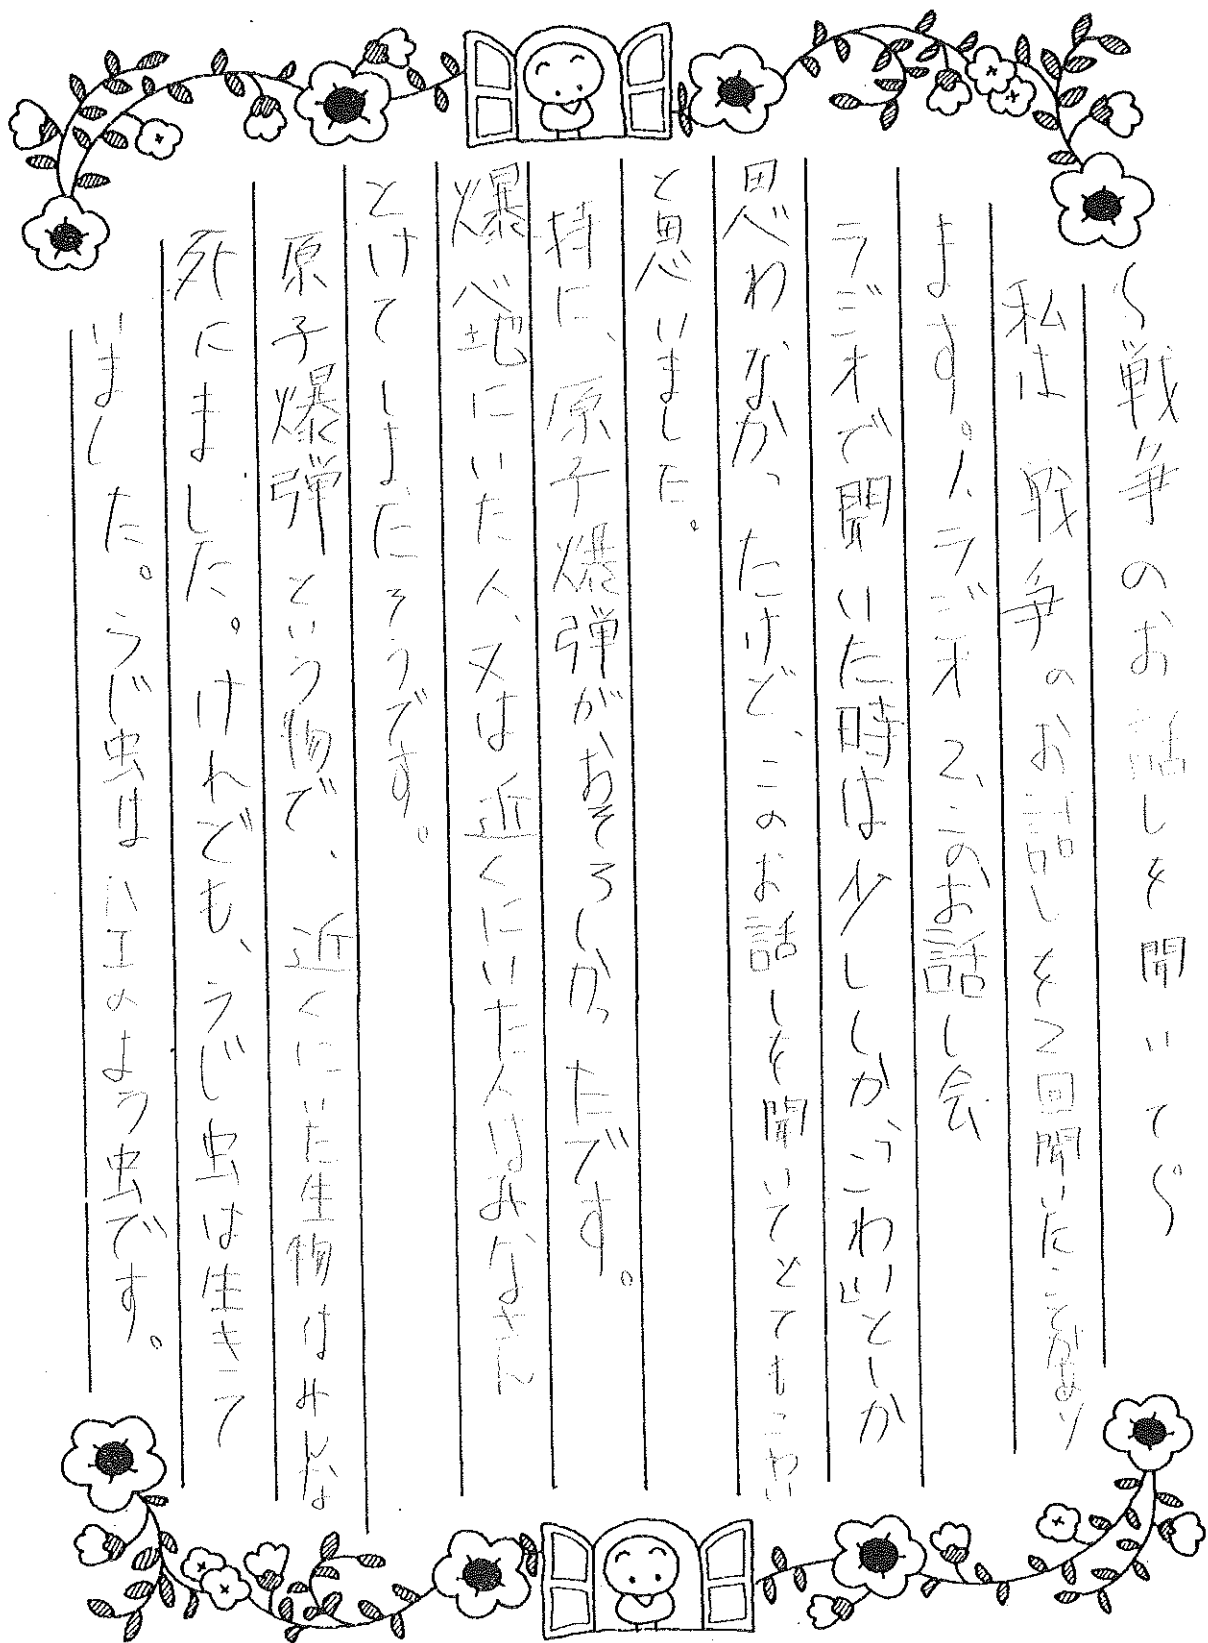 〜戦争のお話しを聞いて〜
私は戦争のお話しを2回聞いたことがあり
ます。1、ラジオ2、このお話し会
ラジオで聞いた時は少ししか「こわい」としか
思わなかったけど、このお話しを聞いてとてもこわい
と思いました。
特に、原子爆弾がおそろしかったです。
爆発地にいた人、又は近くにいた人はみなさん
とけてしまたそうです。
原子爆弾という物で、近くにいた生物はみんな
死にました。けれども、うじ虫は生きて
いました。うじ虫はハエのよう虫です。